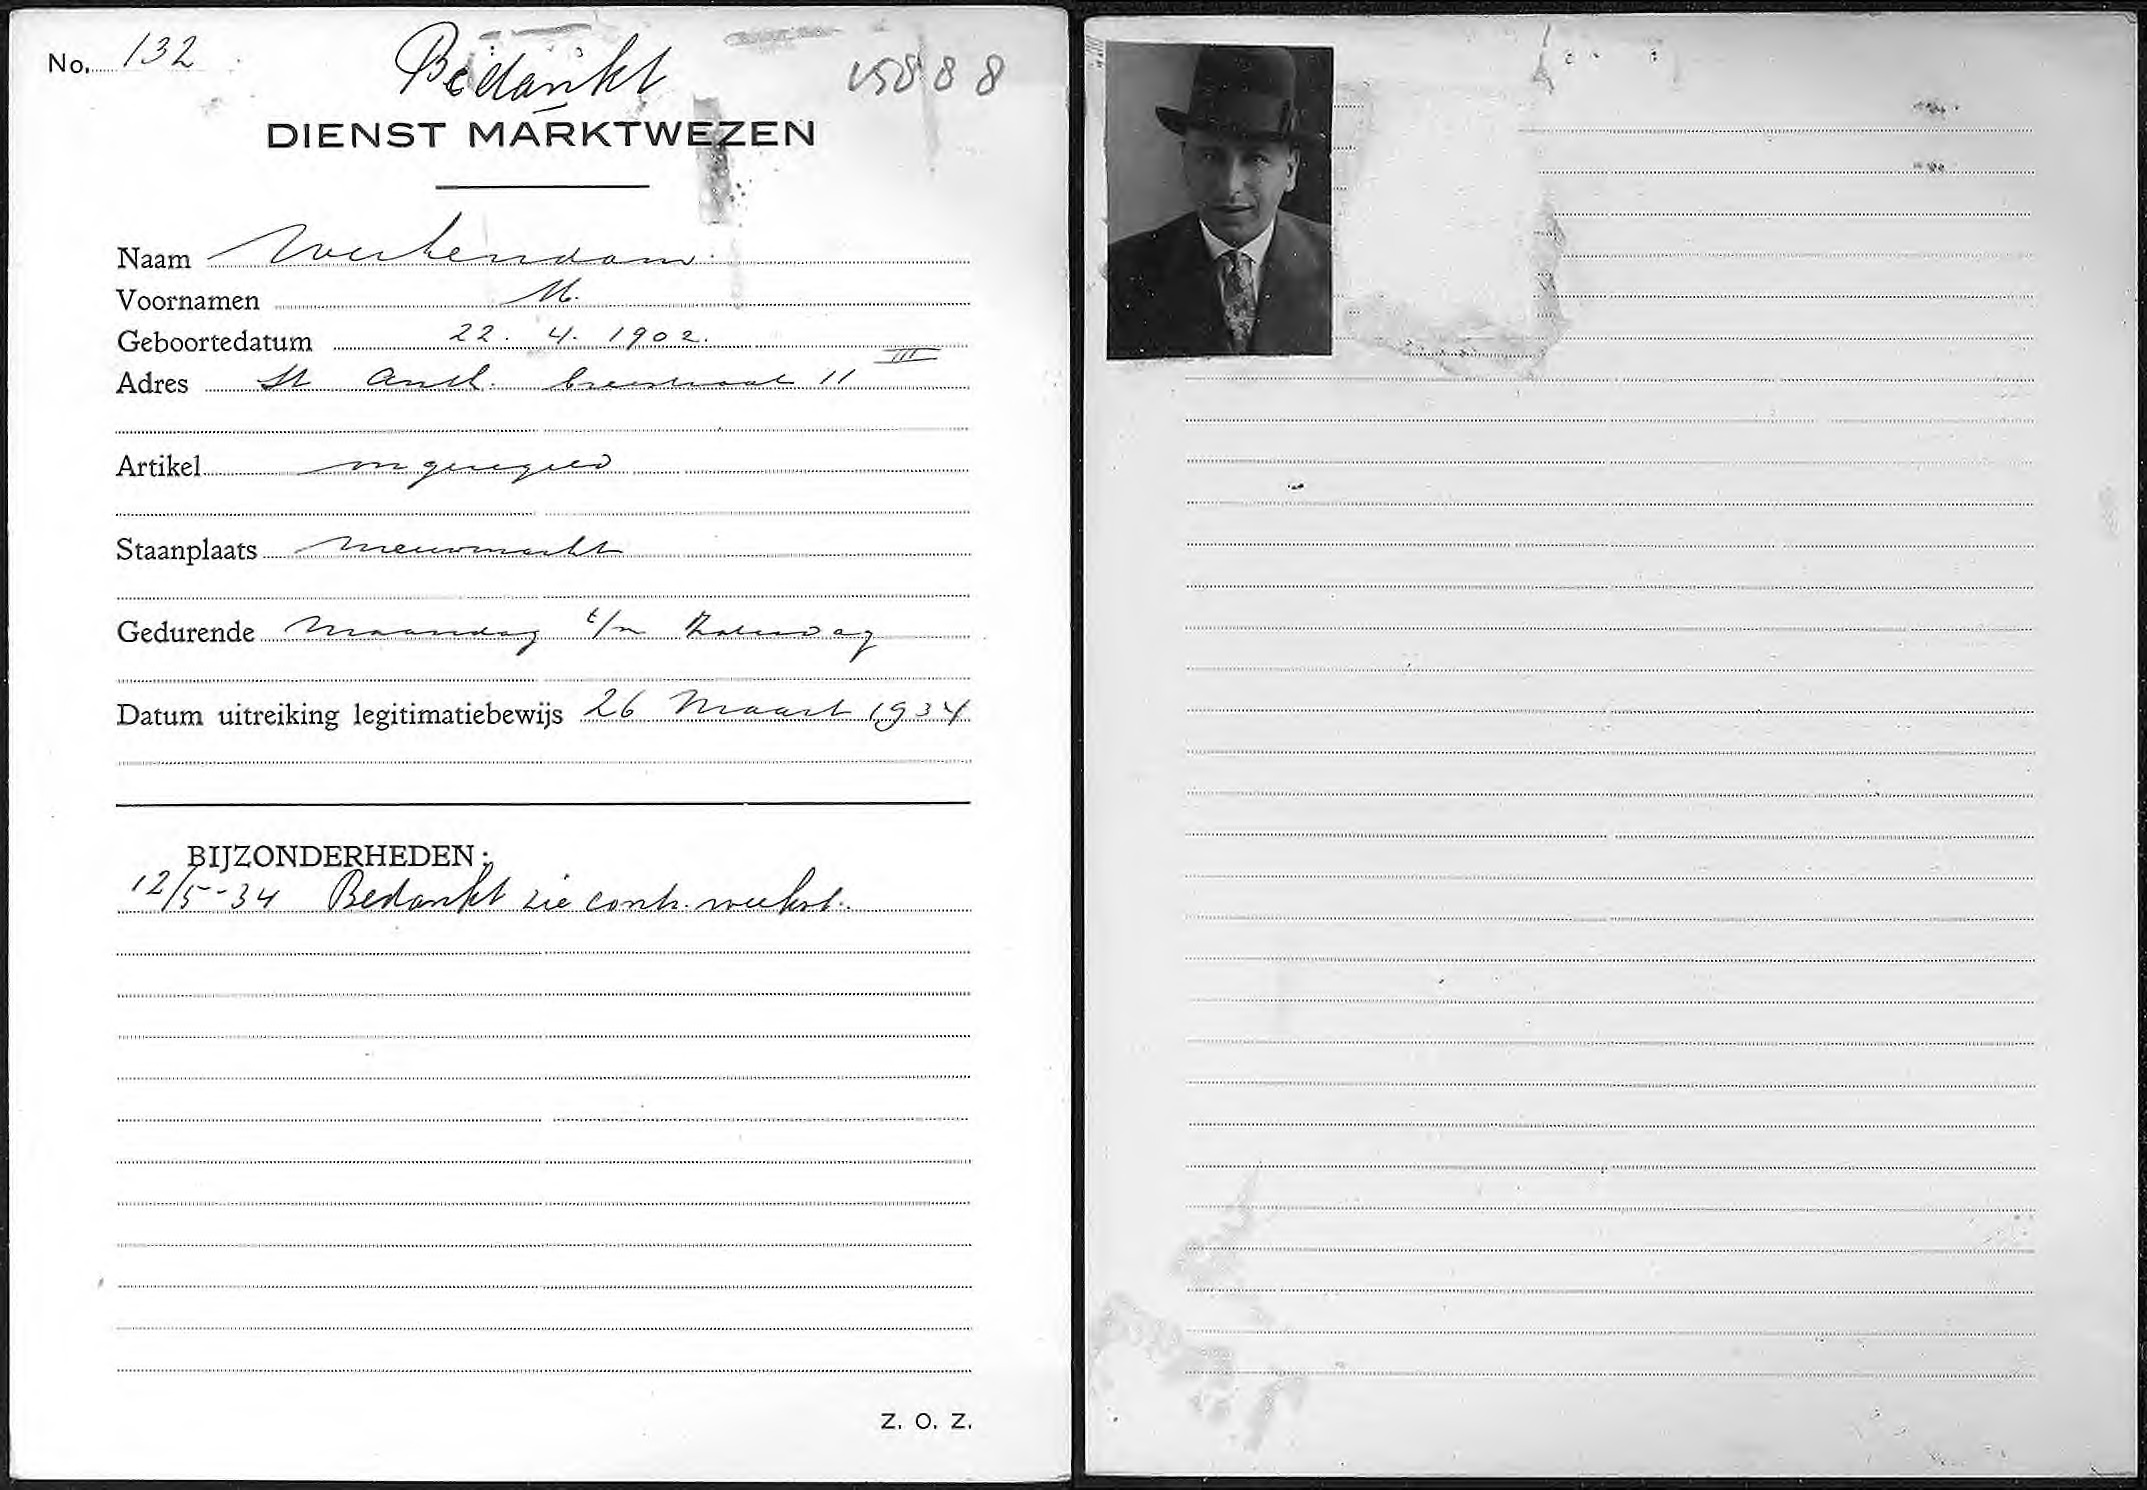 No. 132
Bedankt
15888
DIENST MARKTWEZEN
Naam Werkendam
Voornamen M.
Geboortedatum 22. 4. 1902.
Adres St Anth. breestraat 11 III
Artikel ongeregeld
Staanplaats Nieuwmarkt
Gedurende Maandag t/m Zaterdag
Datum uitreiking legitimatiebewijs 26 Maart 1934
BIJZONDERHEDEN:
12/5-34 Bedankt zie contr.
Z. O. Z.